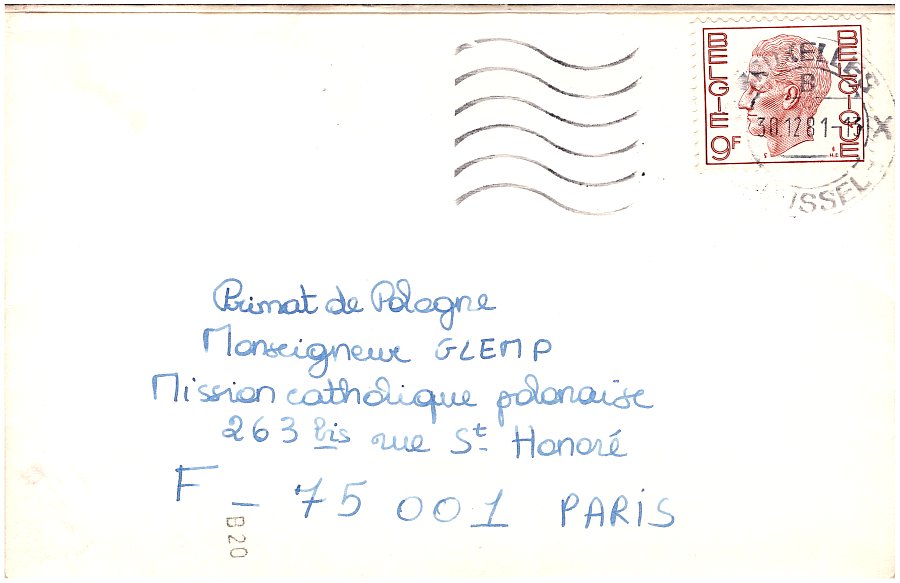 BELGIE
BELGIQUE
9F
BRUXELLES
B
30.12.81-13
X
BRUSSEL
Primat de Pologne
Monseigneur GLEMP
Mission catholique polonaise
263 bis rue St Honoré
F - 75 001 PARIS
B20